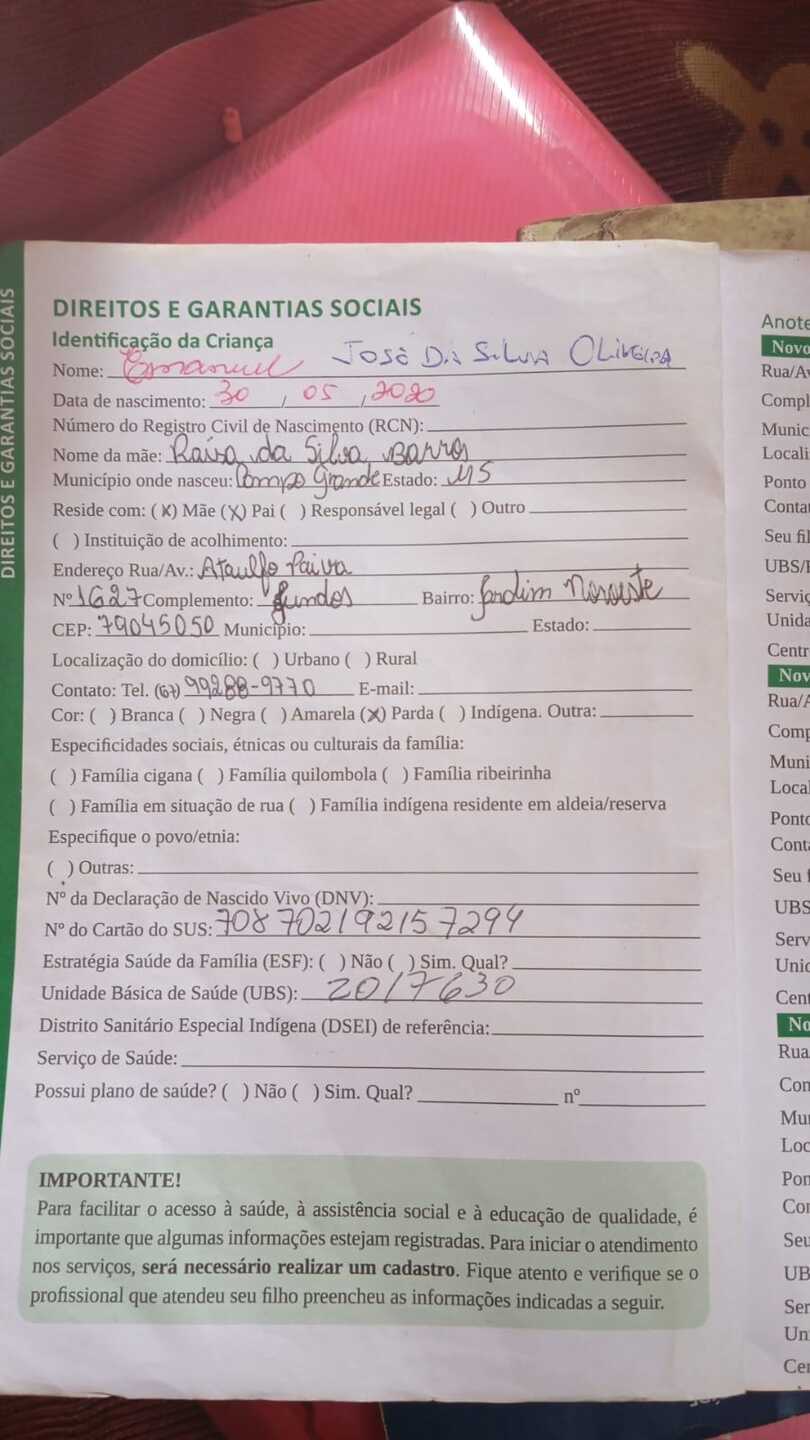 DIREITOS E GARANTIAS SOCIAIS
DIREITOS E GARANTIAS SOCIAIS
Identificação da Criança
Nome: Emanuel José Da Silva Oliveira
Data de nascimento: 30 / 05 / 2020
Número do Registro Civil de Nascimento (RCN):
Nome da mãe: Raísa da Silva Barros
Município onde nasceu: Campo Grande Estado: MS
Reside com: (X) Mãe (X) Pai ( ) Responsável legal ( ) Outro
( ) Instituição de acolhimento:
Endereço Rua/Av.: Ataulfo Paiva
Nº 1627 Complemento: fundos Bairro: Jardim Noroeste
CEP: 79045050 Município: Estado:
Localização do domicílio: ( ) Urbano ( ) Rural
Contato: Tel. (67) 99288-9770 E-mail:
Cor: ( ) Branca ( ) Negra ( ) Amarela (X) Parda ( ) Indígena. Outra:
Especificidades sociais, étnicas ou culturais da família:
( ) Família cigana ( ) Família quilombola ( ) Família ribeirinha
( ) Família em situação de rua ( ) Família indígena residente em aldeia/reserva
Especifique o povo/etnia:
( ) Outras:
Nº da Declaração de Nascido Vivo (DNV):
Nº do Cartão do SUS: 708 7021 9215 7294
Estratégia Saúde da Família (ESF): ( ) Não ( ) Sim. Qual?
Unidade Básica de Saúde (UBS): 2017630
Distrito Sanitário Especial Indígena (DSEI) de referência:
Serviço de Saúde:
Possui plano de saúde? ( ) Não ( ) Sim. Qual? nº
IMPORTANTE!
Para facilitar o acesso à saúde, à assistência social e à educação de qualidade, é
importante que algumas informações estejam registradas. Para iniciar o atendimento
nos serviços, será necessário realizar um cadastro. Fique atento e verifique se o
profissional que atendeu seu filho preencheu as informações indicadas a seguir.
Anote
Novo
Rua/Av
Compl
Munic
Locali
Ponto
Conta
Seu fil
UBS/
Serviç
Unida
Centr
Nov
Rua/A
Comp
Muni
Local
Ponto
Cont
Seu f
UBS
Serv
Unid
Cent
No
Rua
Con
Mu
Loc
Pon
Cor
Seu
UB
Ser
Un
Cer